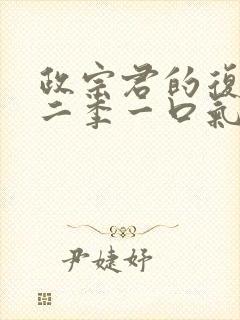 政宗君的復
二季一口氣
尹婕妤